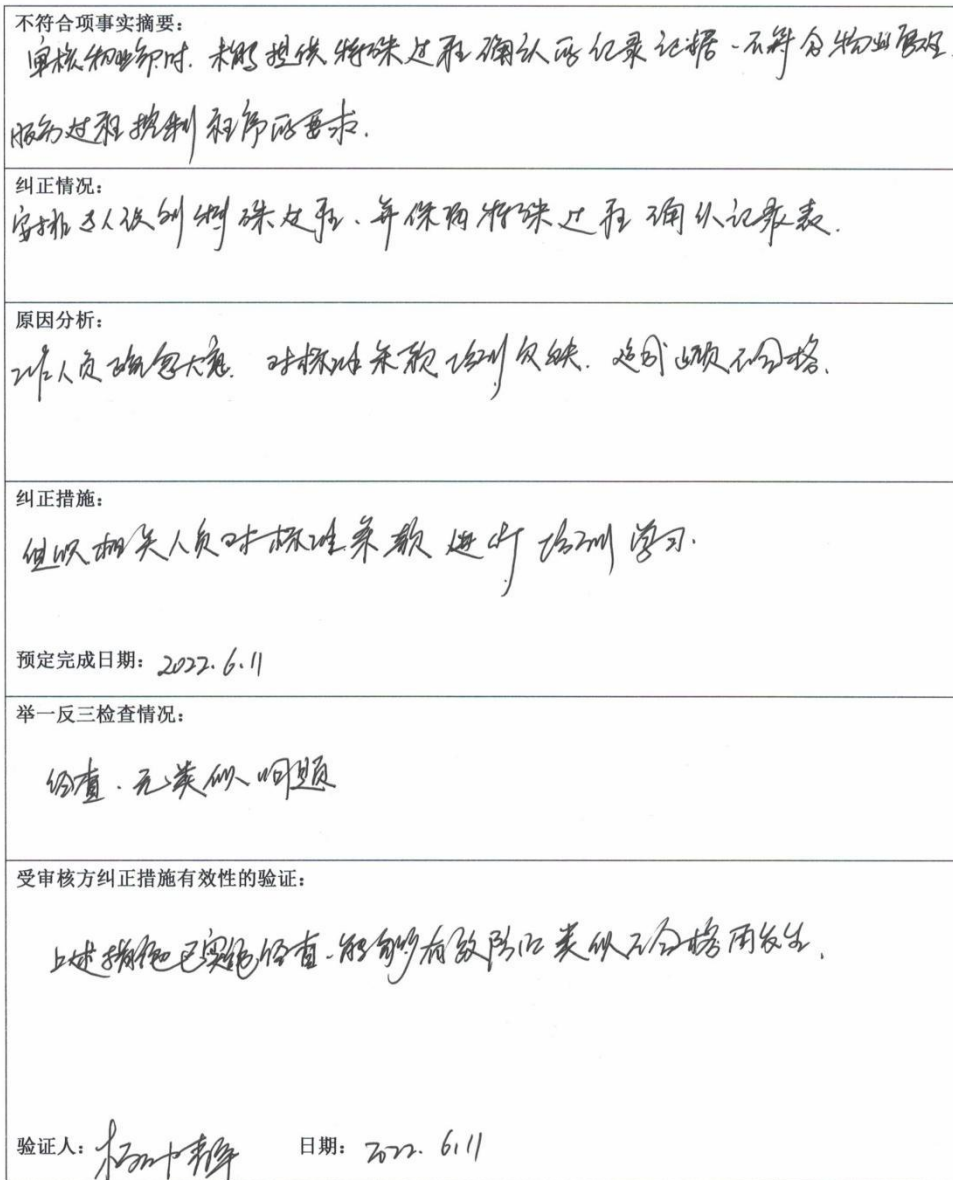 不符合项事实摘要:
审核物业部时.未能提供特殊过程确认的记录证据.不符合物业管理
服务过程控制程序的要求.
纠正情况:
安排专人识别特殊过程、并保留特殊过程确认记录表.
原因分析:
工作人员疏忽大意.对标准条款培训欠缺.造成此项不合格.
纠正措施:
组织相关人员对标准条款进行培训学习.
预定完成日期: 2022.6.11
举一反三检查情况:
经查.无类似问题
受审核方纠正措施有效性的验证:
上述措施已实施经查.能够有效防止类似不合格再发生.
验证人: 日期: 2022.6.11